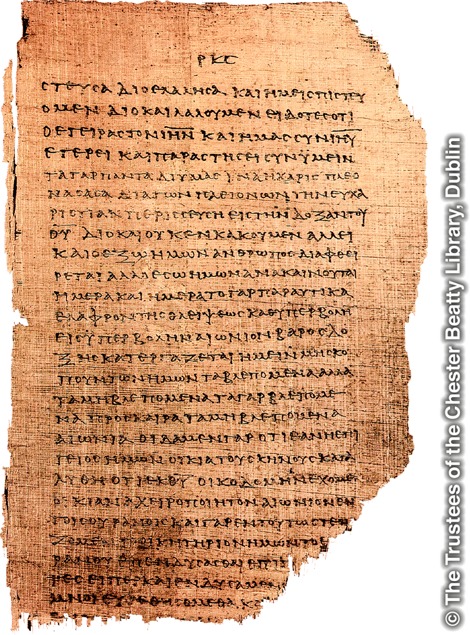 ΡΚϚ
ϹΤΕΥϹΑ ΔΙΟ ΕΛΑΛΗϹΑ ΚΑΙ ΗΜΕΙϹ ΠΙϹΤΕΥ
ΟΜΕΝ ΔΙΟ ΚΑΙ ΛΑΛΟΥΜΕΝ ΕΙΔΟΤΕϹ ΟΤΙ
Ο ΕΓΕΙΡΑϹ ΤΟΝ ΙΗΝ ΚΑΙ ΗΜΑϹ ϹΥΝ ΙΗΥ
ΕΓΕΡΕΙ ΚΑΙ ΠΑΡΑϹΤΗϹΕΙ ϹΥΝ ΥΜΕΙΝ
ΤΑ ΓΑΡ ΠΑΝΤΑ ΔΙ ΥΜΑϹ ΙΝΑ Η ΧΑΡΙϹ ΠΛΕΟ
ΝΑϹΑϹΑ ΔΙΑ ΤΩΝ ΠΛΕΙΟΝΩΝ ΤΗΝ ΕΥΧΑ
ΡΙϹΤΙΑΝ ΠΕΡΙϹϹΕΥϹΗ ΕΙϹ ΤΗΝ ΔΟΞΑΝ ΤΟΥ
ΘΥ ΔΙΟ ΚΑΙ ΟΥΚ ΕΝΚΑΚΟΥΜΕΝ ΑΛΛ ΕΙ
ΚΑΙ Ο ΕΞΩ ΗΜΩΝ ΑΝΘΡΩΠΟϹ ΔΙΑΦΘΕΙ
ΡΕΤΑΙ ΑΛΛ Ο ΕϹΩ ΗΜΩΝ ΑΝΑΚΑΙΝΟΥΤΑΙ
ΗΜΕΡΑ ΚΑΙ ΗΜΕΡΑ ΤΟ ΓΑΡ ΠΑΡΑΥΤΙΚΑ
ΕΛΑΦΡΟΝ ΤΗϹ ΘΛΕΙΨΕΩϹ ΚΑΘ ΥΠΕΡΒΟΛΗ
ΕΙϹ ΥΠΕΡΒΟΛΗΝ ΑΙΩΝΙΟΝ ΒΑΡΟϹ ΔΟ
ΞΗϹ ΚΑΤΕΡΓΑΖΕΤΑΙ ΗΜΕΙΝ ΜΗ ϹΚΟ
ΠΟΥΝΤΩΝ ΗΜΩΝ ΤΑ ΒΛΕΠΟΜΕΝΑ ΑΛΛΑ
ΤΑ ΜΗ ΒΛΕΠΟΜΕΝΑ ΤΑ ΓΑΡ ΒΛΕΠΟΜΕ
ΝΑ ΠΡΟϹΚΑΙΡΑ ΤΑ ΜΗ ΒΛΕΠΟΜΕΝΑ
ΑΙΩΝΙΑ ΟΙΔΑΜΕΝ ΓΑΡ ΟΤΙ ΕΑΝ Η ΕΠΙ
ΓΕΙΟϹ ΗΜΩΝ ΟΙΚΙΑ ΤΟΥ ϹΚΗΝΟΥϹ ΚΑΤΑ
ΛΥΘΗ ΟΤΙ ΕΚ ΘΥ ΟΙΚΟΔΟΜΗΝ ΕΧΟΜΕ
ΟΙΚΙΑΝ ΑΧΕΙΡΟΠΟΙΗΤΟΝ ΑΙΩΝΙΟΝ ΕΝ
ΤΟΙϹ ΟΥΡΑΝΟΙϹ ΚΑΙ ΓΑΡ ΕΝ ΤΟΥΤΩ ϹΤΕΝ
ΖΟΜΕΝ ΤΟ ΟΙΚΗΤΗΡΙΟΝ ΗΜΩΝ ΤΟ
ΡΑΝΟΥ ΕΠΕΝΔΥϹΑϹΘΑΙ ΕΠΙΠ
ΕΙΠΕΡ ΚΑΙ ΕΝΔΥϹΑΜΕΝ
ΜΝΟΙ ΕΥΡΕΘΗϹΟΜΕΘΑ Κ
© The Trustees of the Chester Beatty Library, Dublin